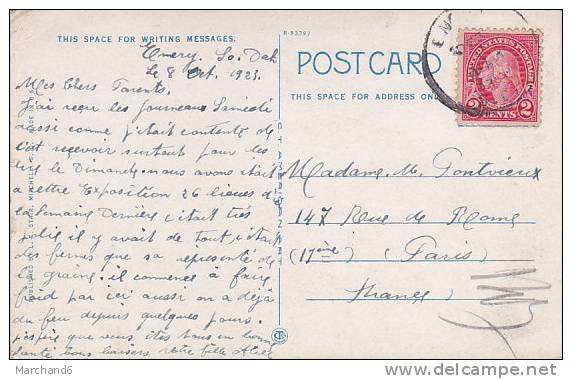 THIS SPACE FOR WRITING MESSAGES.
R-93797
POST CARD
THIS SPACE FOR ADDRESS ONLY
UNITED STATES POSTAGE
2 CENTS 2
Emery, So. Dak
le 8 Oct. 1923.
Mes Chers Parents.
J'ai reçu les journeaux Samedi
aussi comme j'étais contente de
les recevoir surtout pour les
lire le Dimanche. nous avons était
a cette Exposition 26 lieues d'
la Semaine Dernière c'était très
jolie il y avait de tout, c'était
des fermes que sa representé de
la graine. il commence à faire
froid par ici aussi on a déjà
du feu depuis quelques jours.
j'espère que vous êtes tous en bonne
santé bons baisers votre fille Alice
Madame M. Pontvieux
147 Rue de Rome
(17ème) Paris
France
Marchand6
© delcampe.net